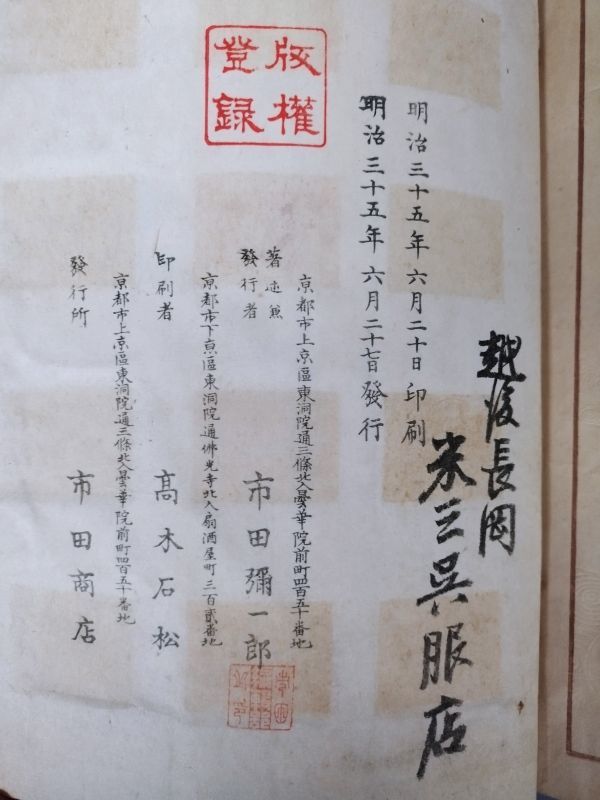 越後長岡
米三呉服店
明治三十五年六月二十日印刷
明治三十五年六月二十七日發行
版權
登錄
京都市上京區東洞院通三條北入曇華院前町四百五十番地
著述兼
發行者
市田彌一郎
京都市下京區東洞院通佛光寺北入扇酒屋町三百貳番地
印刷者
高木石松
京都市上京區東洞院通三條北入曇華院前町四百五十番地
發行所
市田商店